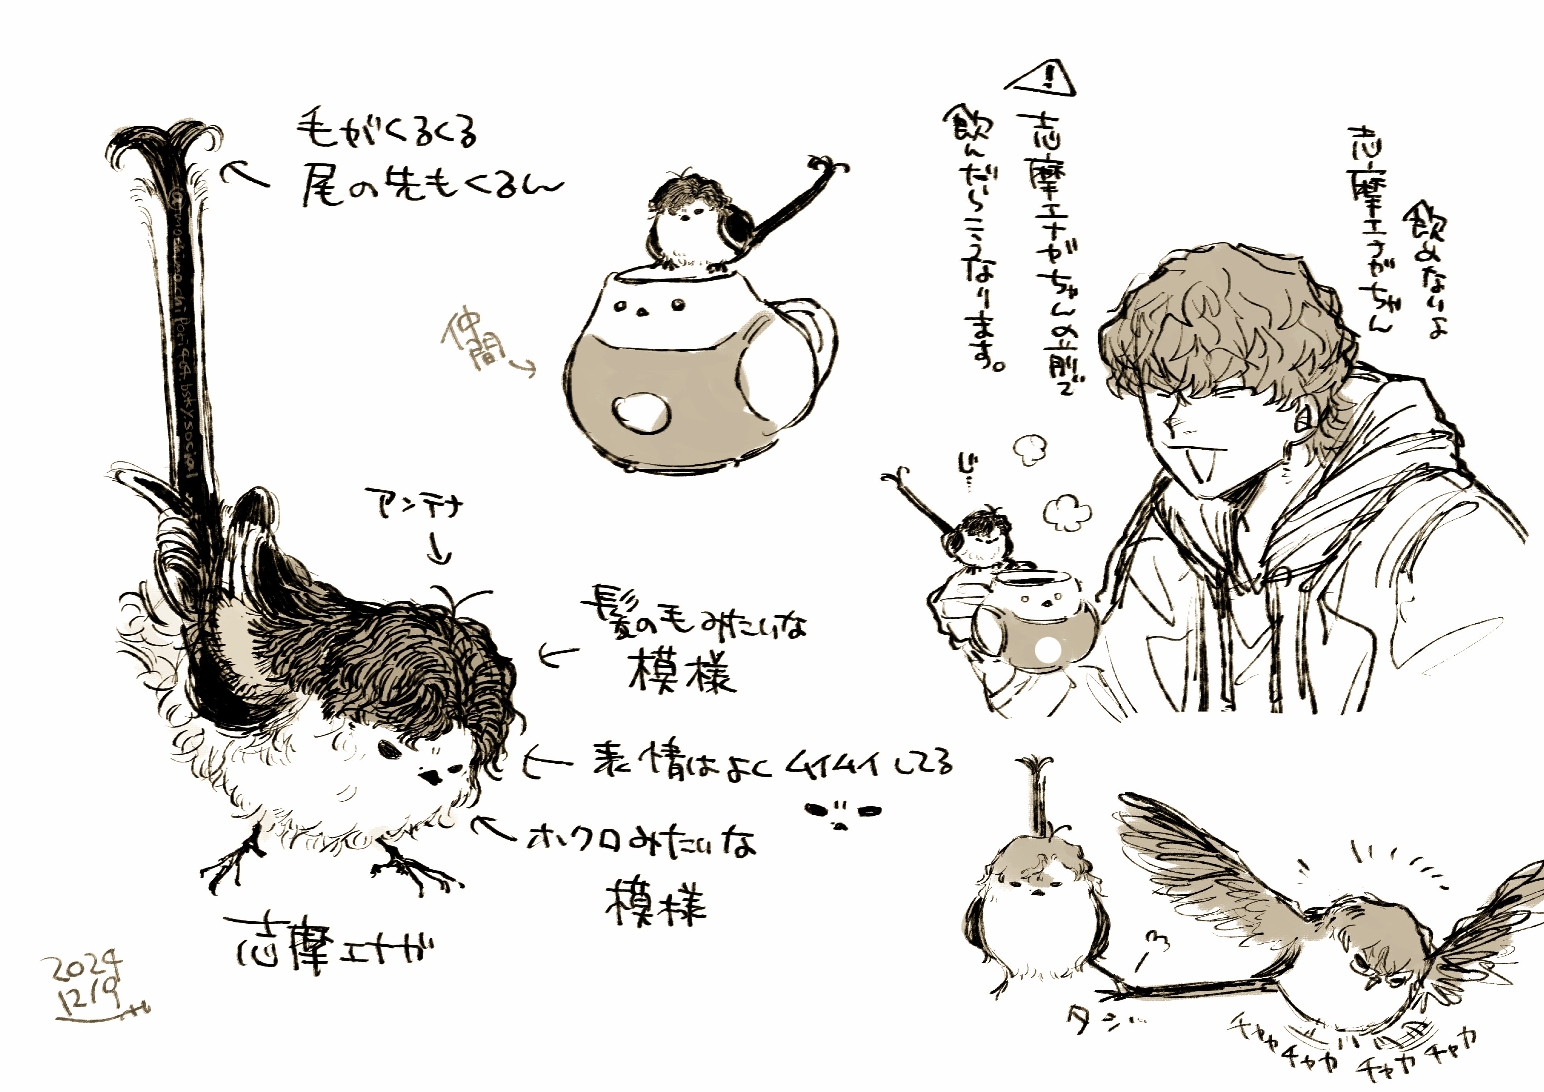 毛がくるくる
尾の先もくるん
仲間
アンテナ
髪の毛みたいな
模様
表情はよくムイムイしてる
ホクロみたいな
模様
志摩エナガ
2024
12/9
!
志摩エナガちゃんの前で
飲んだらこうなります。
飲めないよ
志摩エナガちゃん
じ…
タシ…
チャカ
チャカ
チャカ
チャカ